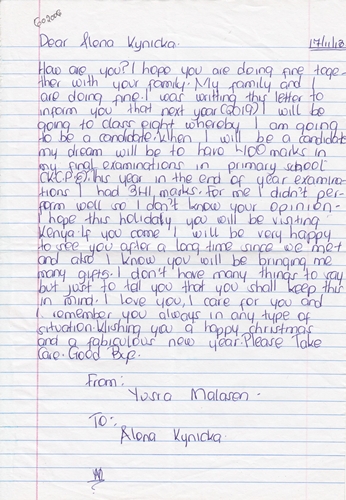 Dear Alena Kynicka.
17/11/18
How are you? I hope you are doing fine toge-
ther with your family. My family and I
are doing fine. I was writting this letter to
inform you that next year (2019) I will be
going to class eight whereby I am going
to be a candidate. When I will be a candidate
my dream will be to have 400 marks in
my final examinations in primary school
(K.C.P.E). This year in the end of year examina-
tions I had 341 marks. For me I didn't per-
form well so I don't know your opinion.
I hope this holiday you will be visiting
Kenya. If you come I will be very happy
to see you after a long time since we met
and also I know you will be bringing me
many gifts. I don't have many things to say
but just to tell you that you shall keep this
in mind. I love you, I care for you and
I remember you always in any type of
situation. Wishing you a happy christmas
and a fabiculous new year. Please Take
Care. Good Bye.
From:
Yusra Malasen.
To:
Alena Kynicka.